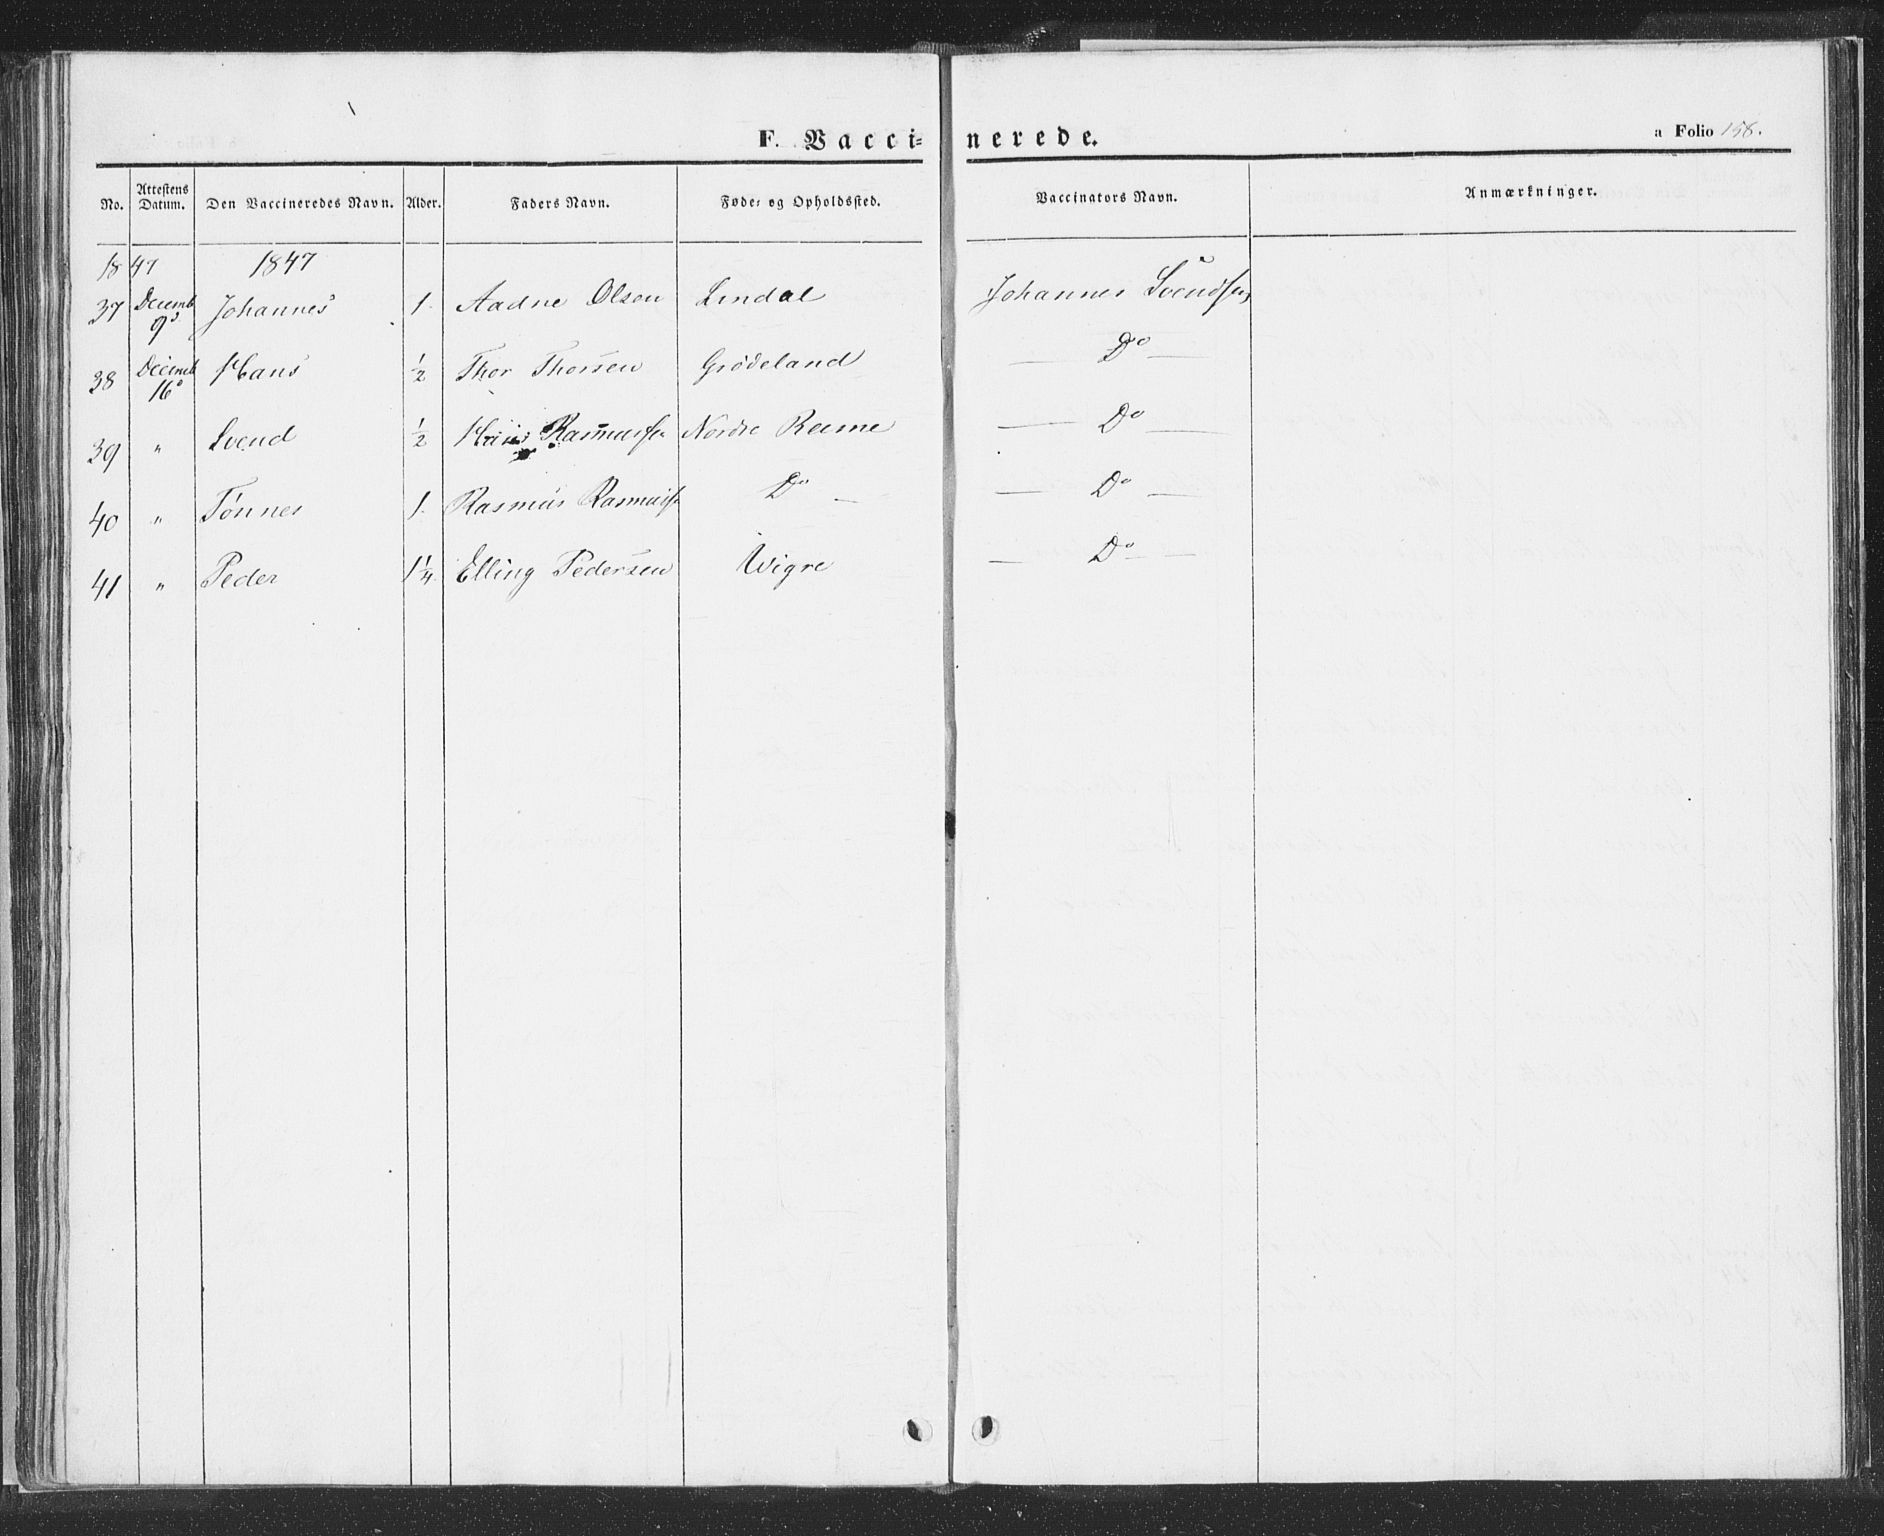 F. Vacci=nerede.
a Folio 158.
No. Attestens Datum. Den Vaccineredes Navn. Alder. Faders Navn. Føde= og Opholdssted. Vaccinators Navn. Anmærkninger.
1847 1847
37 Decemb 9d Johannes 1. Aadne Olsen Lendal Johannes Svendsen
38 Decemb 16d Hans 1/2 Thor Thorsen Grødeland — Do —
39 " Svend 1/2 Hans Rasmussen Nordre Reeme — Do —
40 " Tønnes 1. Rasmus Rasmuss Do — — Do —
41 " Peder 1 1/4. Elling Pedersen Wigre — Do —